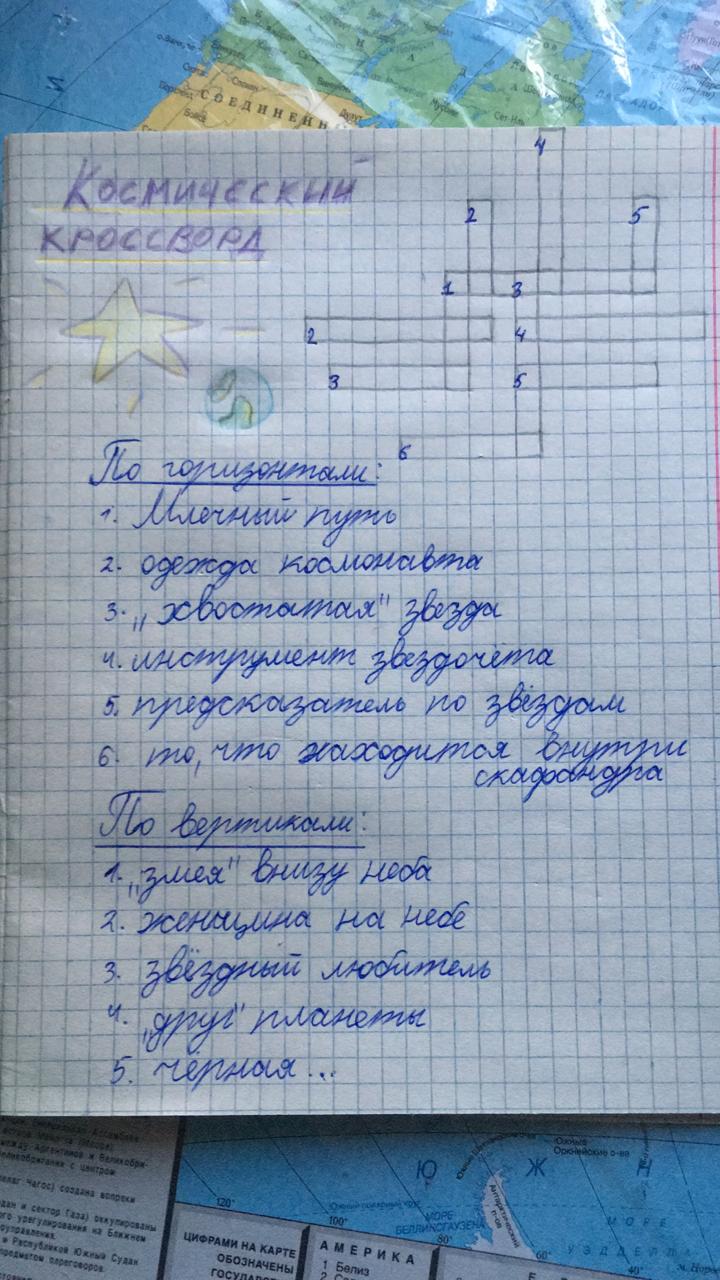 СОЕДИНЕНН
Космический
кроссворд
4
2
5
1
3
2
4
3
5
6
По горизонтали:
1. Млечный путь
2. одежда космонавта
3. "хвостатая" звезда
4. инструмент звездочёта
5. предсказатель по звёздам
6. то, что находится внутри
скафандра
По вертикали:
1. "змея" внизу неба
2. женщина на небе
3. звёздный любитель
4. "друг" планеты
5. чёрная...
между Аргентиной и Великобри-
елаг Чагос) создана вопреки
дан и сектор Газа) оккупированы
ого урегулирования на Ближнем
и Республикой Южный Судан
предметом переговоров.
120°
100°
80°
60°
40°
МОРЕ
БЕЛЛИНСГАУЗЕНА
Ю Ж
Южные
Оркнейские о-ва
Антарктический
п-ов
МОРЕ
УЭДДЕЛЛА
ЦИФРАМИ НА КАРТЕ
ОБОЗНАЧЕНЫ
ГОСУДАРС
АМЕРИКА
1 Белиз